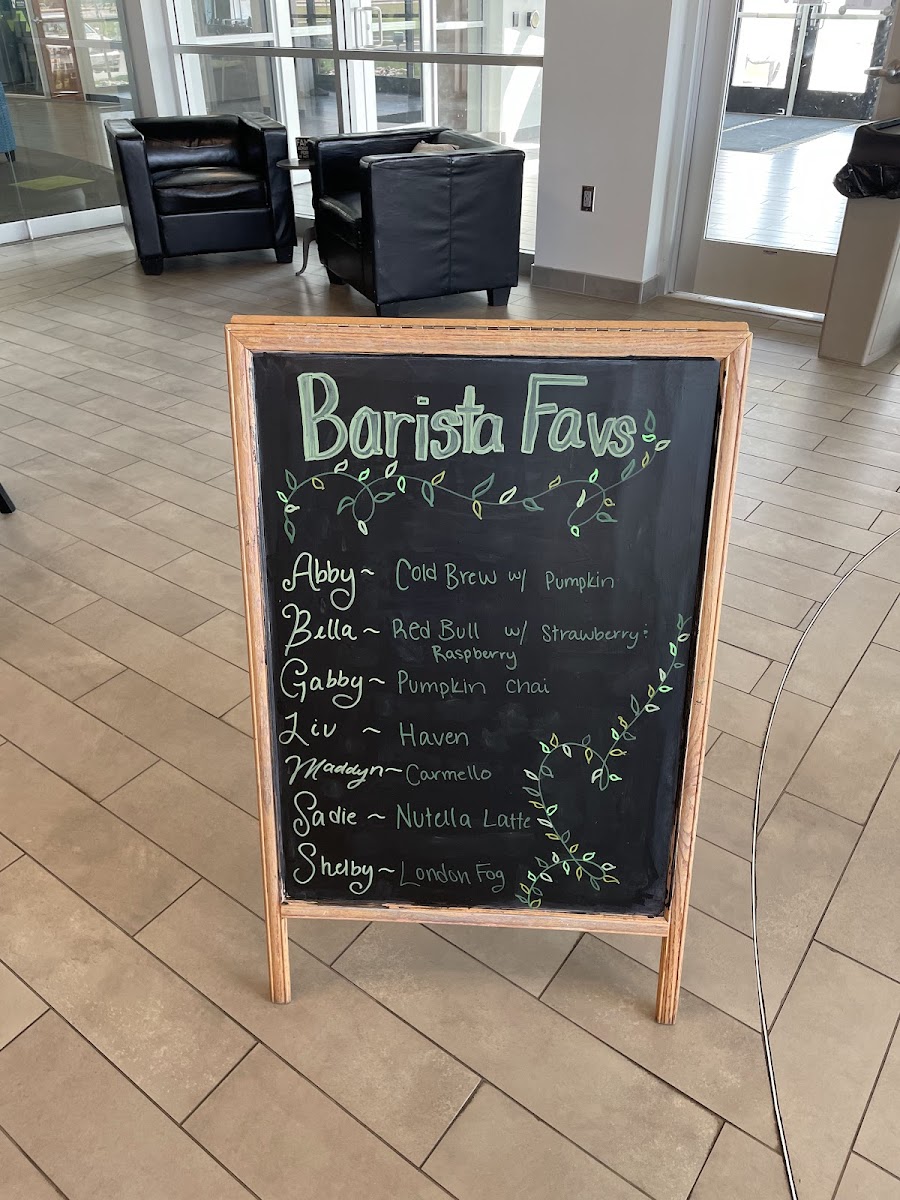 Barista Favs
Abby ~ Cold Brew w/ Pumpkin
Bella ~ Red Bull w/ Strawberry:
Raspberry
Gabby ~ Pumpkin Chai
Liv ~ Haven
Maddyn ~ Carmello
Sadie ~ Nutella Latte
Shelby ~ London Fog